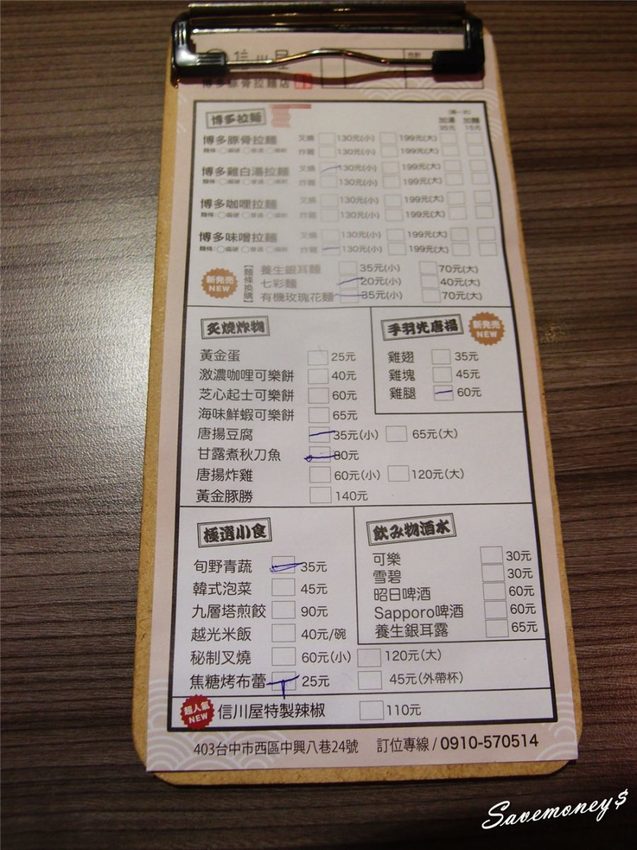 信川屋
博多豚骨拉麵店
博多拉麵 加湯 加麵
博多豚骨拉麵 叉燒 130元(小) 199元(大)
炸雞 130元(小) 199元(大)
博多雞白湯拉麵 叉燒 130元(小) 199元(大)
炸雞 130元(小) 199元(大)
博多咖哩拉麵 叉燒 130元(小) 199元(大)
炸雞 130元(小) 199元(大)
博多味噌拉麵 叉燒 130元(小) 199元(大)
炸雞 130元(小) 199元(大)
新発売 NEW
麵條換購
養生銀耳麵 35元(小) 70元(大)
七彩麵 20元(小) 40元(大)
有機玫瑰花麵 35元(小) 70元(大)
炙燒炸物
黃金蛋 25元
激濃咖哩可樂餅 40元
芝心起士可樂餅 60元
海味鮮蝦可樂餅 65元
唐揚豆腐 35元(小) 65元(大)
甘露煮秋刀魚 80元
唐揚炸雞 60元(小) 120元(大)
黃金豚勝 140元
手羽先唐揚
新発売 NEW
雞翅 35元
雞塊 45元
雞腿 60元
極選小食
旬野青蔬 35元
韓式泡菜 45元
九層塔煎餃 90元
越光米飯 40元/碗
秘制叉燒 60元(小) 120元(大)
焦糖烤布蕾 25元 45元(外帶杯)
飲み物酒水
可樂 30元
雪碧 30元
昭日啤酒 60元
Sapporo啤酒 60元
養生銀耳露 65元
超人氣 NEW
信川屋特製辣椒 110元
403台中市西區中興八巷24號 訂位專線 / 0910-570514
Savemoney$